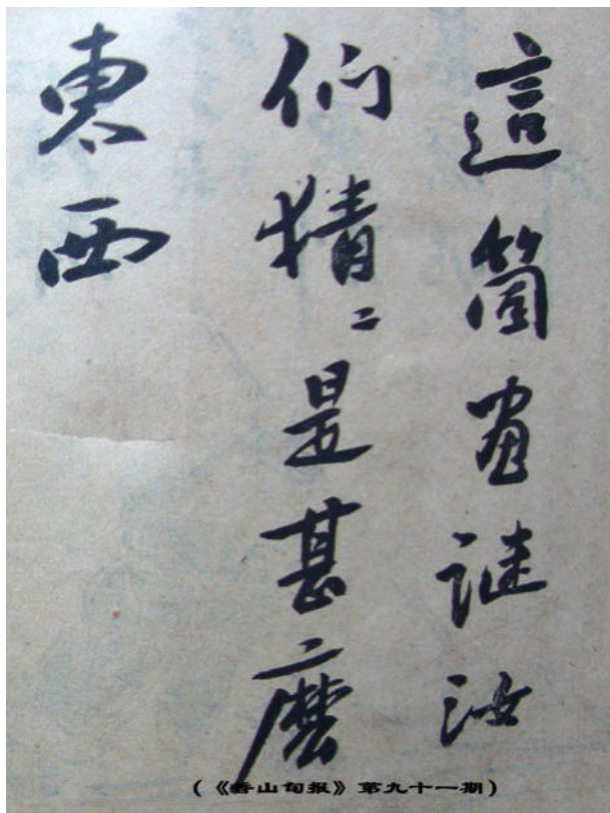 這箇畫謎汝
们猜〻是甚麼
東西
(《香山旬报》第九十一期)